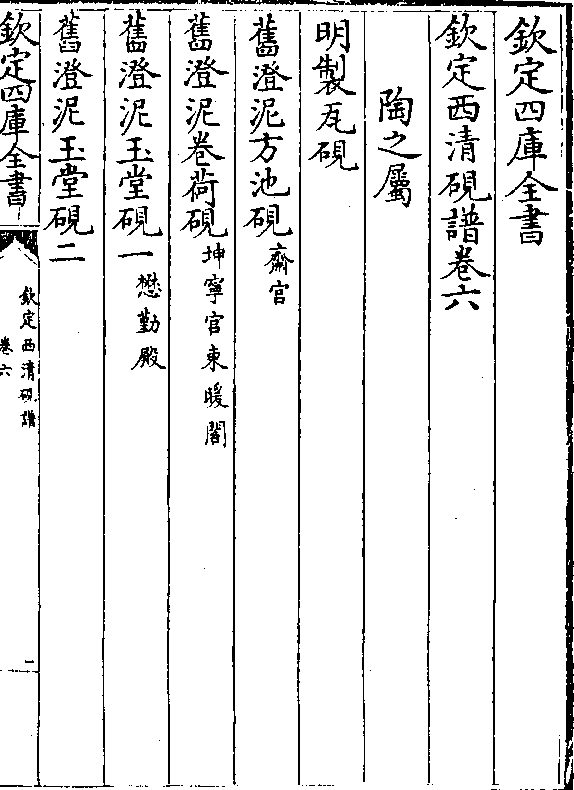 欽定四庫全書
欽定西清硯譜卷六
陶之屬
明製瓦硯
舊澄泥方池硯齋宮
舊澄泥卷荷硯坤寧宮東暖閣
舊澄泥玉堂硯一懋勤殿
舊澄泥玉堂硯二
欽定四庫全書
欽定西清硯譜
卷六
一